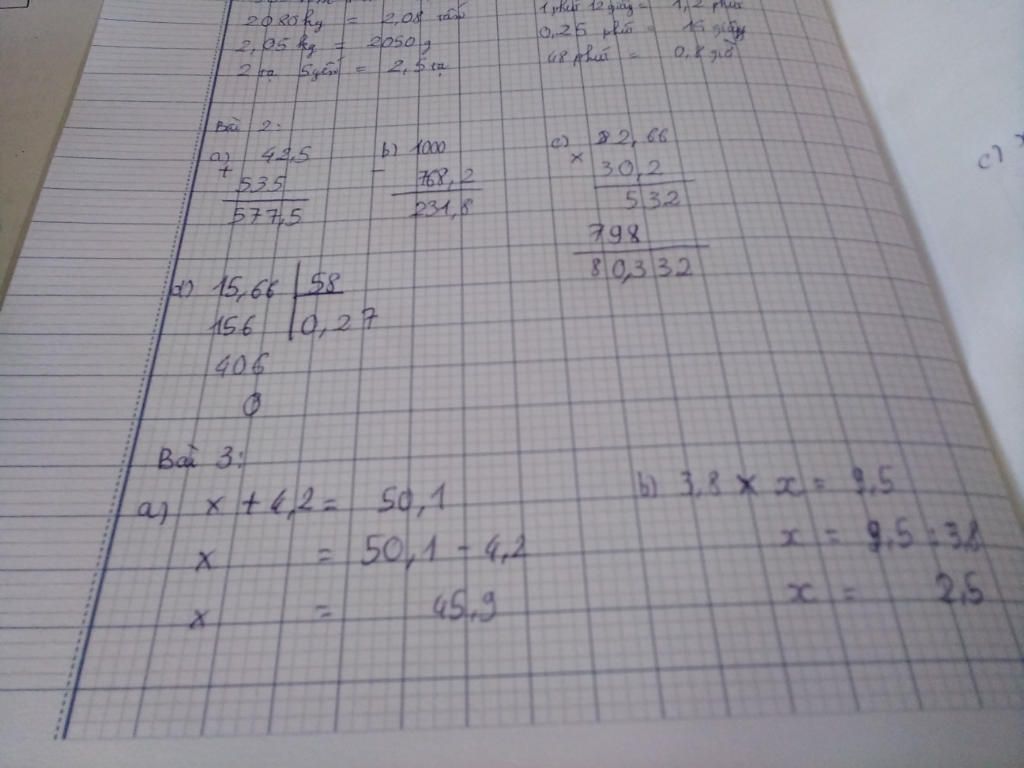 2080 kg = 2,08 tấn
2,05 kg = 2050 g
2 tạ 5 yến = 2,5 tạ
1 phút 12 giây = 1,2 phút
0,25 phút = 15 giây
48 phút = 0,8 giờ
Bài 2:
a) 42,5
+
535
577,5
b) 1000
-
768,2
231,8
c) 82,66
×
30,2
532
798
80,332
d) 15,66 58
156 0,27
406
0
Bài 3:
a) x + 4,2 = 50,1
x = 50,1 - 4,2
x = 45,9
b) 3,8 × x = 9,5
x = 9,5 : 3,8
x = 2,5
c)